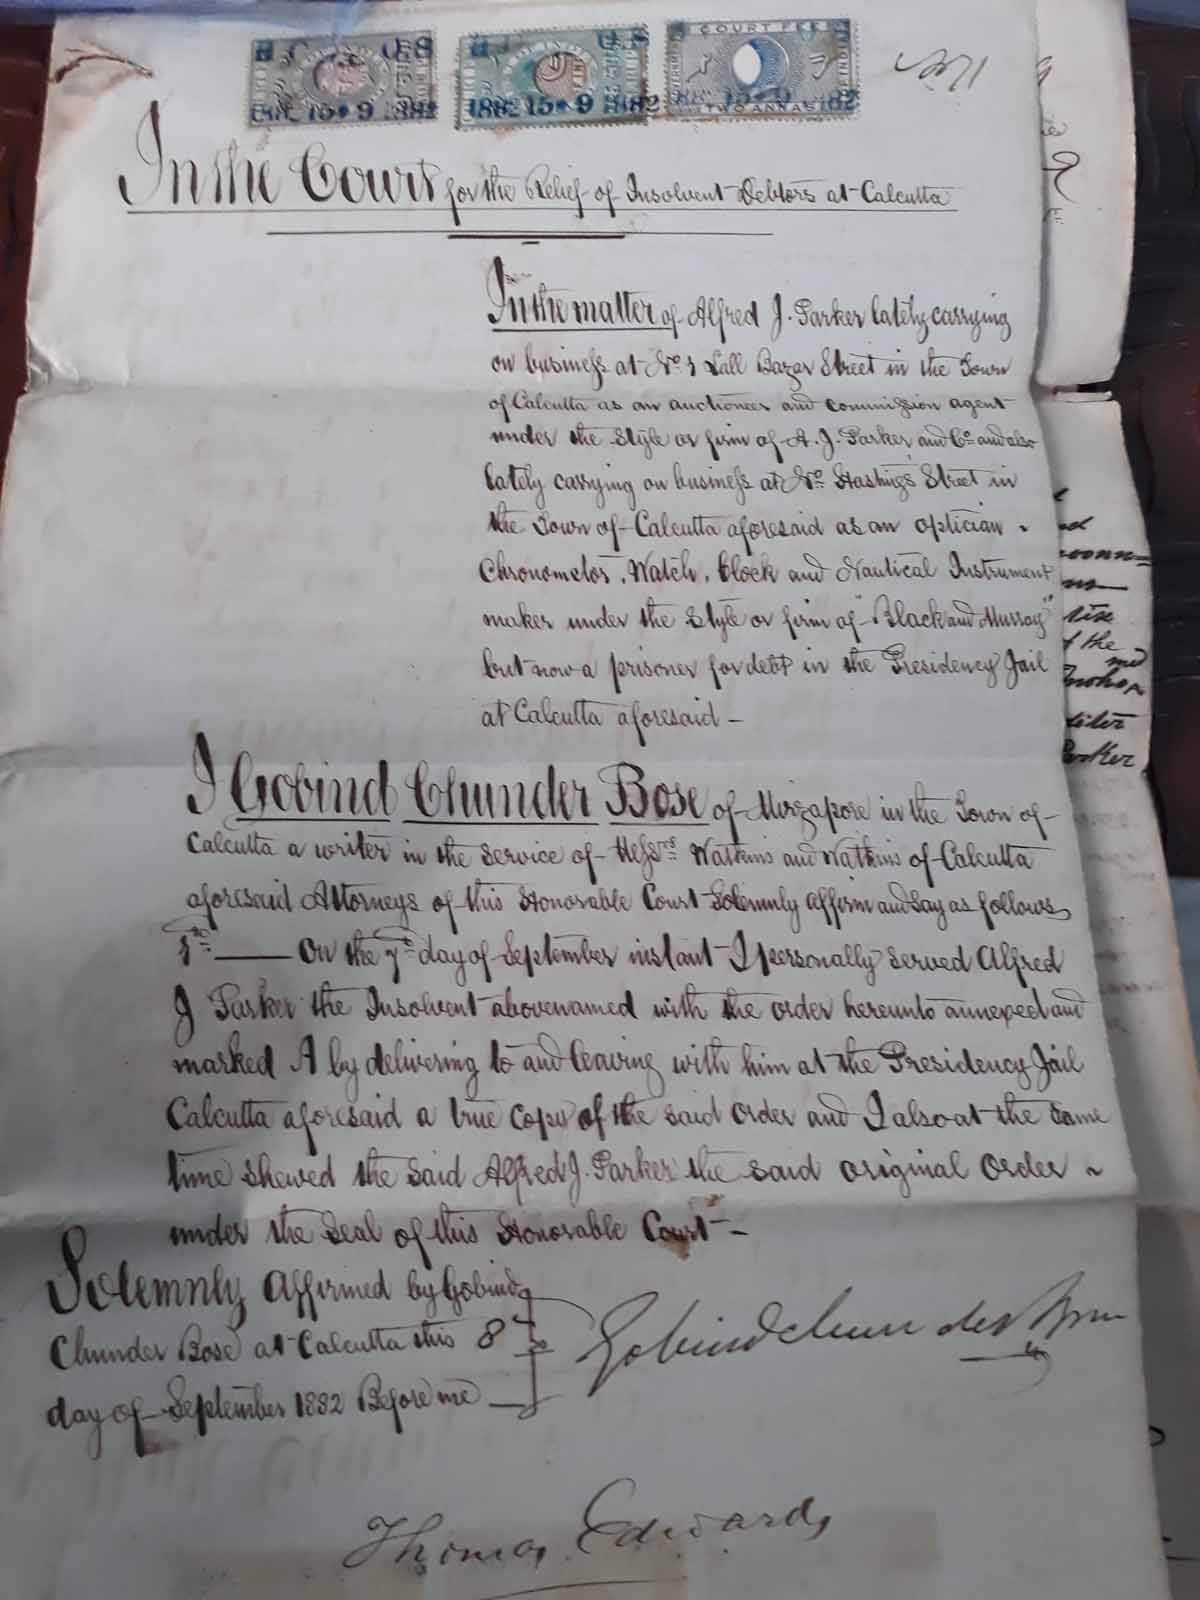 COURT FEE
TWO ANNAS
1882 15 9 1882
In the Court for the Relief of Insolvent Debtors at Calcutta
In the matter of Alfred J. Parker lately carrying
on businefs at No. 1 Lall Bazar Street in the Town
of Calcutta as an auctioneer and commifsion agent
under the style or firm of A. J. Parker and Co. and also
lately carrying on businefs at No. Hastings Street in
the Town of Calcutta aforesaid as an optician
Chronometer, Watch, Clock and Nautical Instrument
maker under the style or firm of "Black and Murray"
but now a prisoner for debt in the Presidency Jail
at Calcutta aforesaid —
I Gobind Chunder Bose of Mirzapore in the Town of
Calcutta a writer in the service of Mefsrs Watkins and Watkins of Calcutta
aforesaid Attorneys of this Honorable Court Solemnly affirm and say as follows
1st —— On the 7th day of September instant I personally served Alfred
J Parker the Insolvent abovenamed with the order hereunto annexed and
marked A by delivering to and leaving with him at the Presidency Jail
Calcutta aforesaid a true copy of the said order and I also at the same
time shewed the said Alfred J. Parker the said original Order
under the seal of this Honorable Court —
Solemnly affirmed by Gobind
Chunder Bose at Calcutta this 8th
day of September 1882 Before me
Gobind Chunder Bose
Thomas Edwards
the
Parker